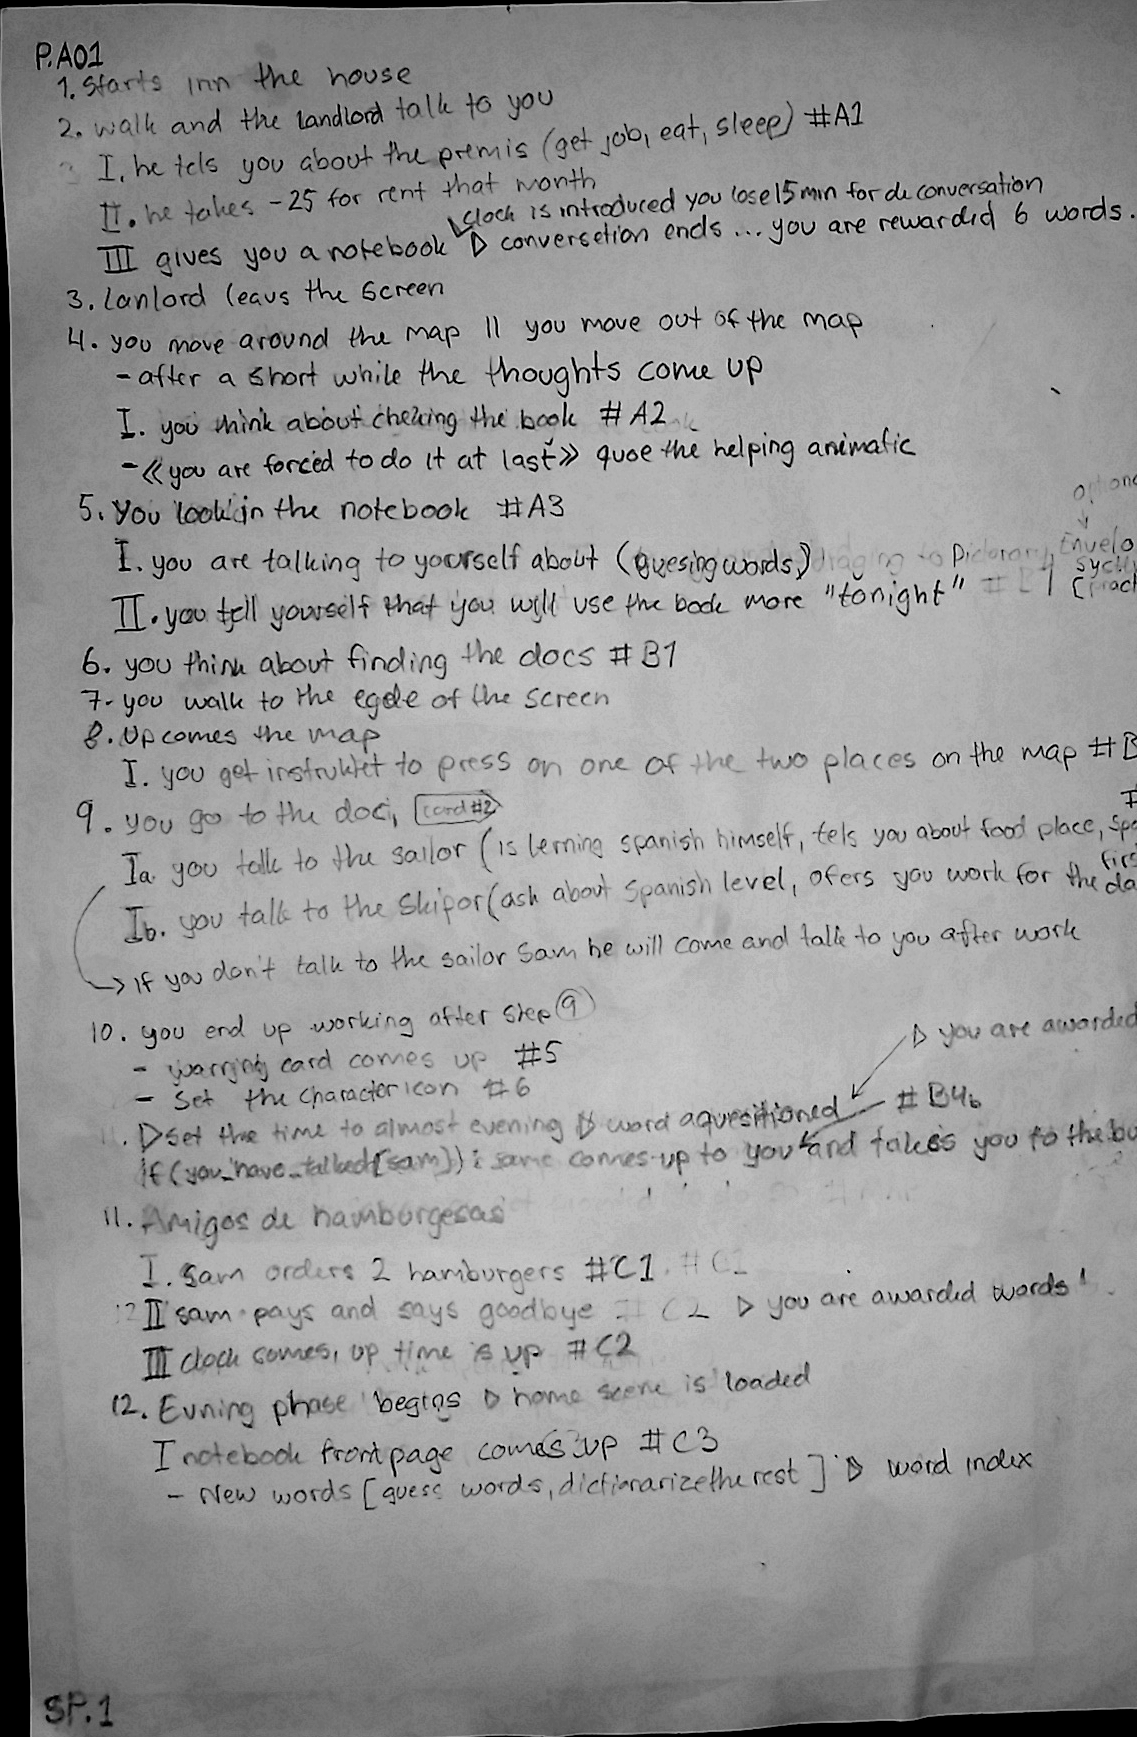 P.A01
1. Starts inn the house
2. walk and the landlord talk to you
I. he tels you about the premis (get job, eat, sleep) #A1
II. he takes -25 for rent that month
clock is introduced you lose 15 min for de conversation
III gives you a notebook ▷ conversetion ends ... you are rewarded 6 words.
3. Lanlord leavs the screen
4. you move around the map || you move out of the map
- after a short while the thoughts come up
I. you think about cheking the book #A2
- «you are forced to do it at last» quoe the helping animatic
5. You look in the notebook #A3
I. you are talking to yourself about (guesing words,) draging to Dictionary, Envelo
II. you tell yourself that you will use the book more "tonight"
6. you think about finding the docs #B1
7. you walk to the egde of the screen
8. Up comes the map
I. you get instruktet to press on one of the two places on the map #B
9. you go to the doc, card #2
Ia. you talk to the sailor (is lerning spanish himself, tels you about food place, Spa
Ib. you talk to the Skipor (ask about Spanish level, ofers you work for the da
→ if you don't talk to the sailor Sam he will come and talk to you after work
10. you end up working after step 9
- warning card comes up #5
- Set the character icon #6
▷ you are awarded
▷ Set the time to almost evening ▷ word aquesitioned #B4b
if (you_have_talked[sam]): same comes up to you and takes you to the bu
11. Amigos de hamburgesas
I. Sam orders 2 hamburgers #C1
II sam pays and says goodbye #C2 ▷ you are awarded words!
III clock comes, up time is up #C2
12. Evning phase begins ▷ home scene is loaded
I notebook frontpage comes up #C3
- New words [guess words, dictionarize the rest] ▷ word index
SP.1